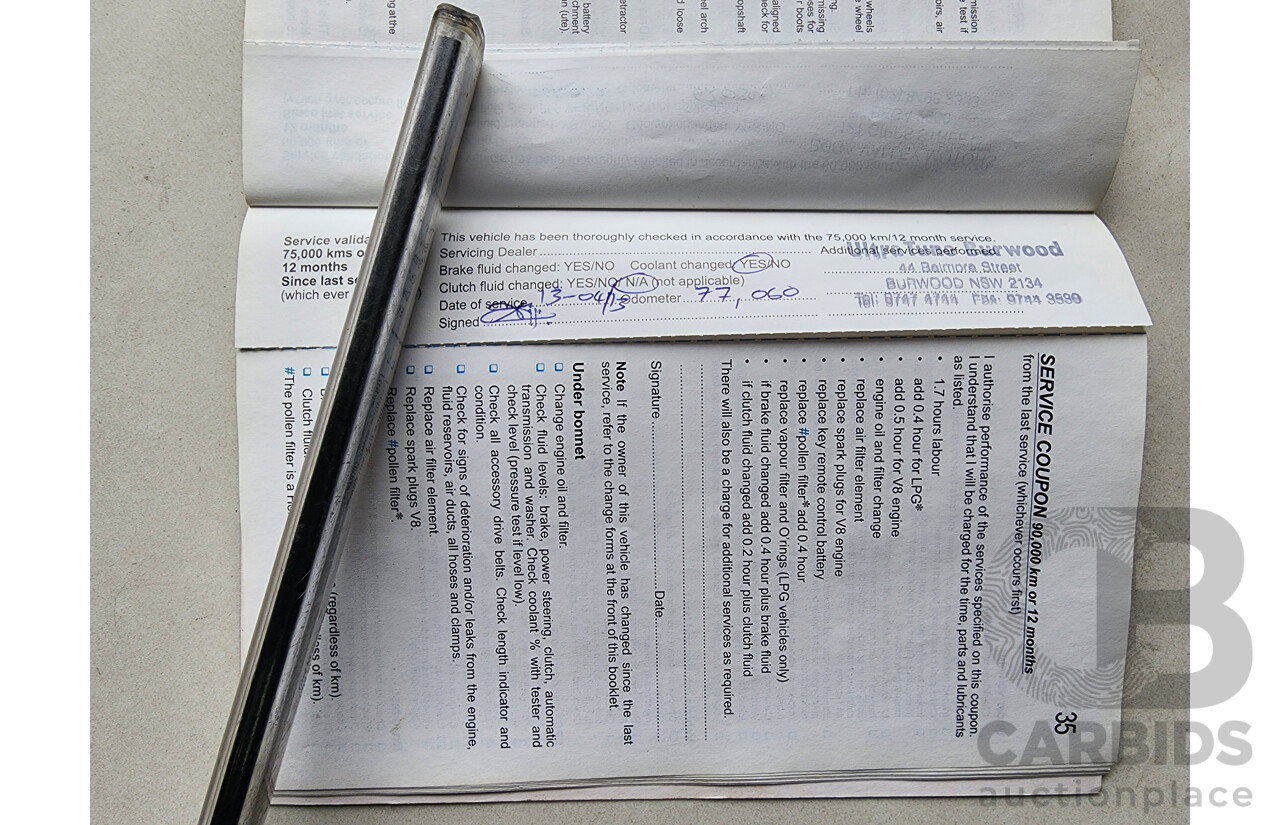 mission
test if
oirs, air
wheels
wheel
missing
ses for
boots
aligned
eck for
opshaft
eel arch
d loose
etractor
battery
chment
n (ute).
ng at the
Service valida
75,000 kms o
12 months
Since last se
(which ever
This vehicle has been thoroughly checked in accordance with the 75,000 km/12 month service.
Servicing Dealer Additional services performed
Brake fluid changed: YES/NO Coolant changed YES/NO
Clutch fluid changed: YES/NO/ N/A (not applicable)
Date of service 13-04/13 Odometer 77,060
Signed
UltraTune Burwood
44 Belmore Street
BURWOOD NSW 2134
Tel: 9747 4744 Fax: 9744 3599
35
SERVICE COUPON 90,000 km or 12 months
from the last service (whichever occurs first)
I authorise performance of the services specified on this coupon.
I understand that I will be charged for the time, parts and lubricants
as listed.
• 1.7 hours labour
• add 0.4 hour for LPG*
• add 0.5 hour for V8 engine
• engine oil and filter change
• replace air filter element
• replace spark plugs for V8 engine
• replace key remote control battery
• replace #pollen filter* add 0.4 hour
• replace vapour filter and O'rings (LPG vehicles only)
• if brake fluid changed add 0.4 hour plus brake fluid
• if clutch fluid changed add 0.2 hour plus clutch fluid
There will also be a charge for additional services as required.
Signature Date
Note If the owner of this vehicle has changed since the last
service, refer to the change forms at the front of this booklet.
Under bonnet
❑ Change engine oil and filter.
❑ Check fluid levels: brake, power steering, clutch, automatic
transmission and washer. Check coolant % with tester and
check level (pressure test if level low).
❑ Check all accessory drive belts. Check length indicator and
condition.
❑ Check for signs of deterioration and/or leaks from the engine,
fluid reservoirs, air ducts, all hoses and clamps.
❑ Replace air filter element.
❑ Replace spark plugs V8.
Replace #pollen filter*.
(regardless of km).
❑ Clutch fluid less of km).
#The pollen filter is a
CARBIDS
auctionplace